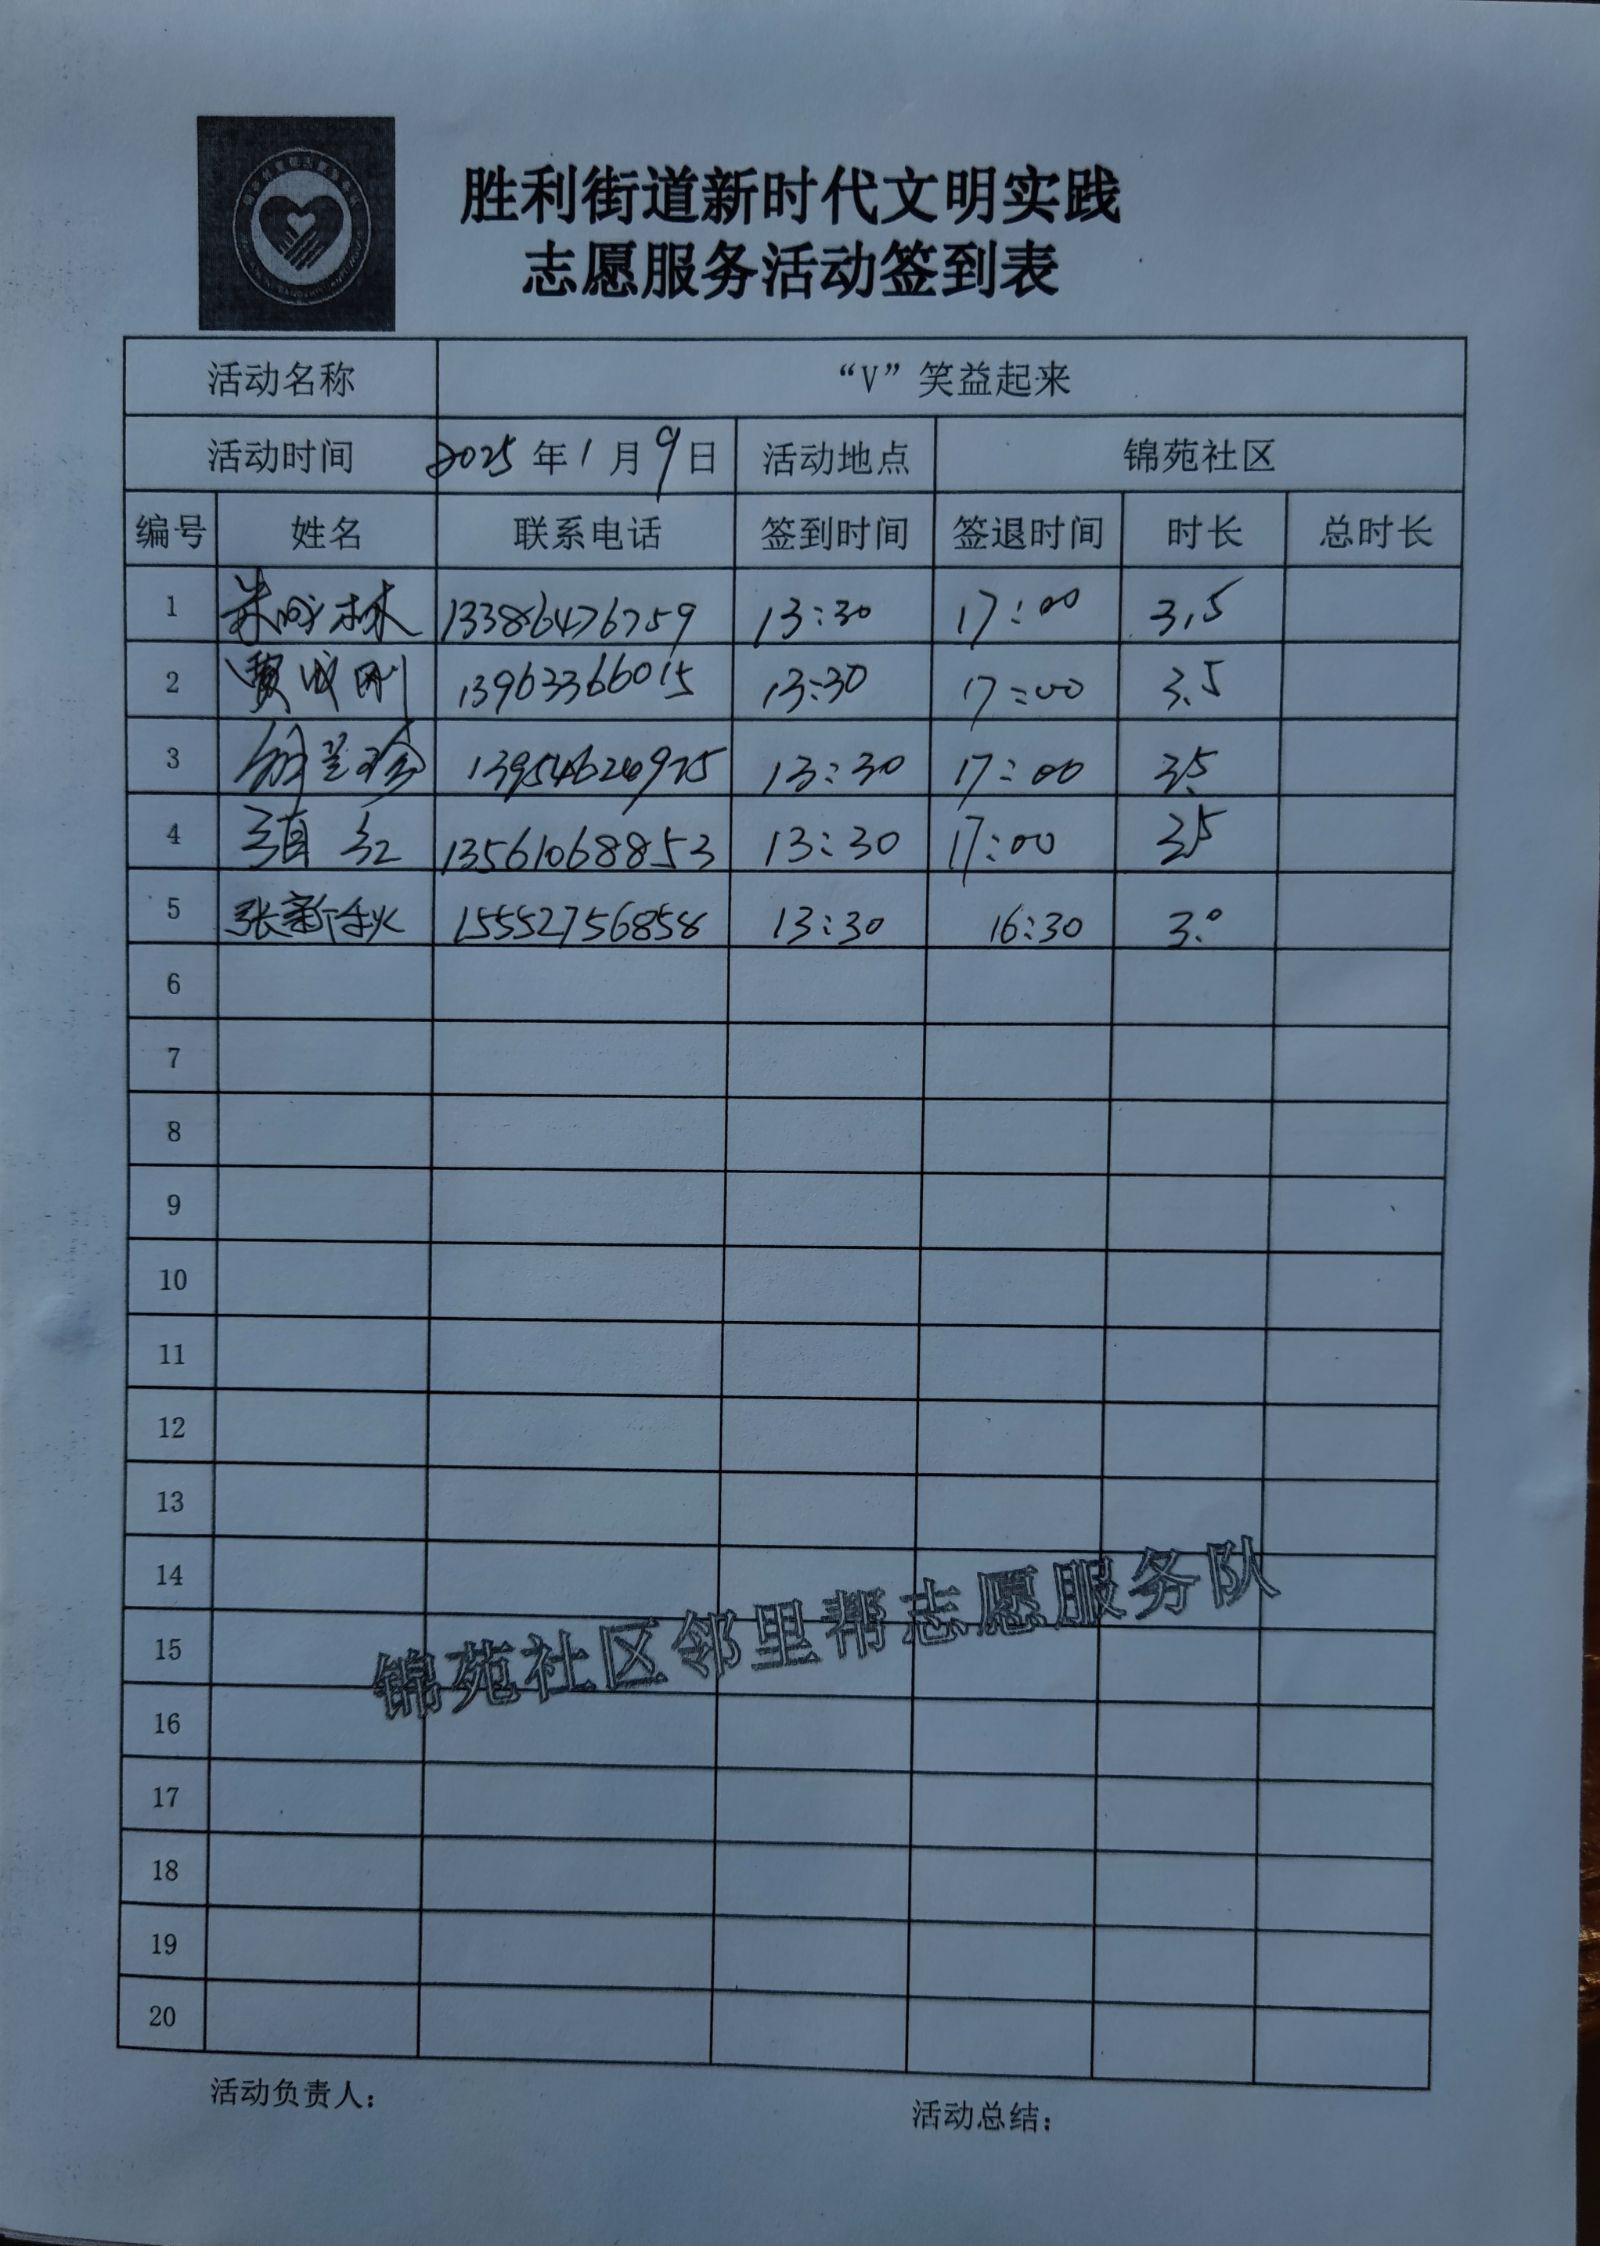 胜利街道新时代文明实践
志愿服务活动签到表
活动名称 “V”笑益起来
活动时间 2025年1月9日 活动地点 锦苑社区
编号 姓名 联系电话 签到时间 签退时间 时长 总时长
1 13386476759 13:30 17:00 3.5
2 贾成刚 13963366015 13:30 17:00 3.5
3 13954624975 13:30 17:00 3.5
4 13561068853 13:30 17:00 3.5
5 张新秋 15552756858 13:30 16:30 3.0
6
7
8
9
10
11
12
13
14
15
16
17
18
19
20
锦苑社区邻里帮志愿服务队
活动负责人： 活动总结：